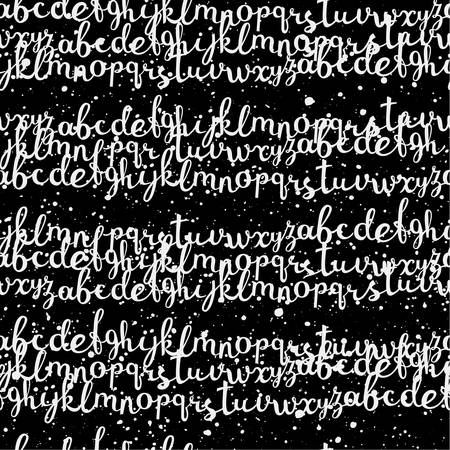 abcdefghijklmnopqrstuvw
wxyzabcdefghijklmnopqrstuv
ghijklmnopqrstuvwxyzabcdefgh
wxyzabcdefghijklmnopqrstu
jklmnopqrstuvwxyzabcdefg
abcdefghijklmnopqrstuvwxyz
jklmnopqrstuvwxyzabcdefgh
abcdefghijklmnopqrstuvwxyz
wxyzabcdefghijklmnopqrstuv
abcdefghijklmnopqrstuvw
jklmnopqrstuvwxyz
ghijklmnopqrstuvwxyzabcdefgh